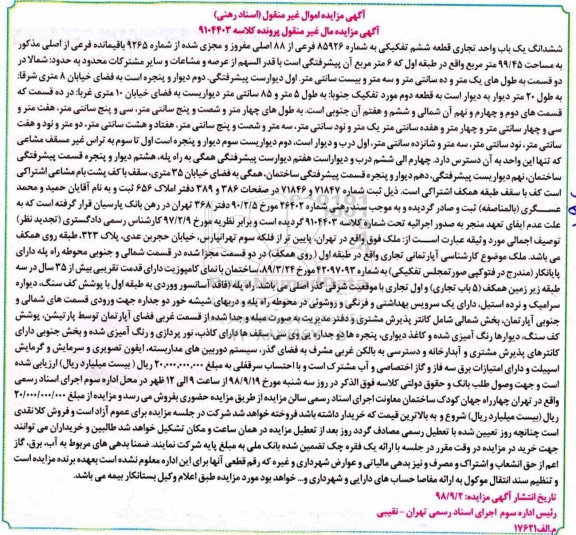 آگهی مزایده اموال غیر منقول (اسناد رهنی)
آگهی مزایده مال غیر منقول پرونده کلاسه ۹۱۰۴۴۰۳
ششدانگ یک باب واحد تجاری قطعه ششم تفکیکی به شماره ۸۵۹۲۶ فرعی از ۸۸ اصلی مفروز و مجزی شده از شماره ۹۲۶۵ باقیمانده فرعی از اصلی مذکور
به مساحت ۹۹/۴۵ متر مربع واقع در طبقه اول که ۶ متر مربع آن پیشرفتگی است با قدر السهم از عرصه و مشاعات و سایر مشترکات محدود به حدود: شمالا در
دو قسمت به طول های یک متر و ده سانتی متر و سه متر و بیست سانتی متر. اول دیواریست پیشرفتگی. دوم دیوار و پنجره است به فضای خیابان ۸ متری شرقا:
به طول ۲۰ متر دیوار به دیوار است به قطعه دوم مورد تفکیک جنوبا: به طول ۵ متر و ۸۵ سانتی متر دیواریست به فضای خیابان ۱۰ متری غربا: در ده قسمت که
قسمت های دوم و چهارم و نهم آن شمالی و ششم و هفتم آن جنوبی است. به طول های چهار متر و شصت و پنج سانتی متر، سی و پنج سانتی متر، هفت متر و
سی و چهار سانتی متر و چهار متر و هفده سانتی متر یک متر و نود سانتی متر، سه متر و شصت و پنج سانتی متر، هفتاد و هشت سانتی متر، دو متر و نود و هفت
سانتی متر، نود سانتی متر، سه متر و شانزده سانتی متر، اول درب و دیوار است، دوم دیواریست سوم دیوار و پنجره است اول تا سوم به تراس غیر مسقف مشاعی
که تنها این واحد به آن دسترس دارد. چهارم الی ششم درب و دیواراست هفتم دیواریست پیشرفتگی همگی به راه پله، هشتم دیوار و پنجره قسمت پیشرفتگی
ساختمان، نهم دیواریست پیشرفتگی، دهم دیوار و پنجره قسمت پیشرفتگی ساختمان، همگی به فضای خیابان ۳۵ متری، سقف با کف پشت بام مشاعی اشتراکی
است کف با سقف طبقه همکف اشتراکی است. ذیل ثبت شماره ۷۱۸۴۷ و ۷۱۸۴۶ در صفحات ۳۸۶ و ۳۸۹ دفتر املاک ۶۵۶ ثبت و به نام آقایان حمید و محمد
عسگری (بالمناصفه) ثبت و صادر گردیده و به موجب سند رهنی شماره ۲۶۴۰۳ مورخ ۹۰/۲/۵ دفتر ۳۶۸ تهران در رهن بانک پارسیان قرار گرفته است که به
علت عدم ایفای تعهد منجر به صدور اجرائیه تحت شماره کلاسه ۹۱۰۴۴۰۳ گردیده است و برابر نظریه مورخ ۹۷/۲/۹ کارشناس رسمی دادگستری (تجدید نظر)
توصیف اجمالی مورد وثیقه عبارت است از: ملک فوق واقع در تهران، پایین تر از فلکه سوم تهرانپارس، خیابان حجربن عدی، پلاک ۳۲۳، طبقه روی همکف
می باشد. ملک موضوع کارشناسی آپارتمانی تجاری واقع در طبقه اول (روی همکف) در دو قسمت مجزا شده در قسمت شمالی و جنوبی محوطه راه پله دارای
پایانکار (مندرج در فتوکپی صورتمجلس تفکیکی) به شماره ۴۲۰۹۷۰۹۳ مورخ ۸۹/۳/۲۴، ساختمان با نمای کامپوزیت دارای قدمت تقریبی بیش از ۲۵ سال در سه
طبقه زیر زمین همکف (۵ باب تجاری) و اول تجاری با موقعیت شرقی گذر اصلی می باشد، راه پله (فاقد آسانسور) ورودی به طبقه اول با پوشش کف سنگ، دیواره
سرامیک و نرده استیل، دارای یک سرویس بهداشتی و فرنگی و زوشوئی در محوطه راه پله و دربهای شیشه خور دو جداره جهت ورودی قسمت های شمالی و
جنوبی آپارتمان، بخش شمالی شامل کانتر پذیرش مشتری و دفتر مدیریت به صورت مبله و جدا شده از قسمت غربی فضای آپارتمان توسط پارتیشن، پوشش
کف سنگ، دیوارها رنگ آمیزی شده و کاغذ دیواری، پنجره ها دو جداره پی وی سی سقف ها دارای کاذب، نور پردازی و رنگ آمیزی شده و بخش جنوبی دارای
کانترهای پذیرش مشتری و آبدارخانه و دسترسی به بالکن غربی مشرف به فضای گذر، سیستم دوربین های مداربسته، ایفون تصویری و سرمایش و گرمایش
اسپیلت و دارای امتیازات برق سه فاز و گاز اختصاصی و آب مشترک است و با احتساب سرقفلی به مبلغ ۲۰,۰۰۰,۰۰۰,۰۰۰ ریال (بیست میلیارد ریال) ارزیابی شده
است و جهت وصول طلب بانک و حقوق دولتی کلاسه فوق الذکر در روز سه شنبه مورخ ۹۸/۹/۱۹ از ساعت ۹ الی ۱۲ ظهر در محل اداره سوم اجرای اسناد رسمی
واقع در تهران چهارراه جهان کودک ساختمان معاونت اجرای اسناد رسمی سالن مزایده از طریق مزایده حضوری بفروش می رسد و مزایده از مبلغ ۲۰/۰۰۰/۰۰۰/۰۰۰
ریال (بیست میلیارد ریال) شروع و به بالاترین قیمت که خریدار داشته باشد فروخته خواهد شد شرکت در جلسه مزایده برای عموم آزاد است و فروش کلا نقدی
است چنانچه روز تعیین شده با تعطیل رسمی مصادف گردد روز بعد از تعطیل مزایده در همان ساعت و مکان تشکیل خواهد شد طالبین و خریداران می توانند
جهت خرید در مزایده در وقت مقرر در جلسه با ارائه یک فقره چک تضمین شده بانک ملی به مبلغ پایه شرکت نمایند. ضمنا بدهی های مربوط به آب، برق، گاز
اعم از حق انشعاب و اشتراک و مصرف و نیز بدهی مالیاتی و عوارض شهرداری و غیره که رقم قطعی آنها برای این اداره معلوم نشده است بعهده برنده مزایده است
و تنظیم سند انتقال موکول به ارائه مفاصا حساب های دارایی و شهرداری و... خواهد بود مورد مزایده طبق اعلام وکیل بستانکار بیمه می باشد.
تاریخ انتشار آگهی مزایده: ۹۸/۹/۲
رئیس اداره سوم اجرای اسناد رسمی تهران - نقیبی
م.الف۱۷۶۲۱